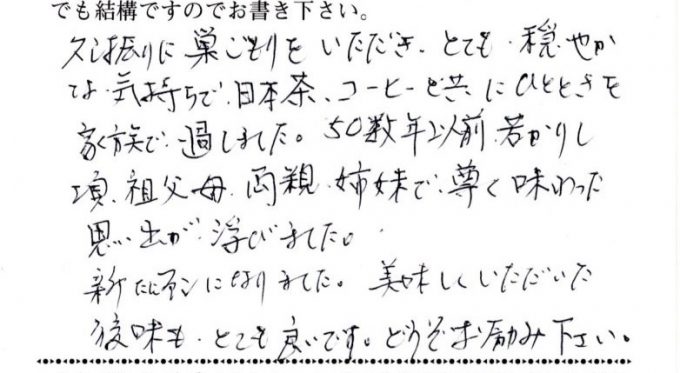 でも結構ですのでお書き下さい。
久し振りに巣ごもりをいただき、とても穏やか
な気持ちで、日本茶、コーヒーと共にひとときを
家族で過しました。50数年以前、若かりし
頃、祖父母、両親、姉妹で、尊く味わった
思い出が浮びました。
新たにファンになりました。美味しくいただいた
後味も、とても良いです。どうぞお励み下さい。